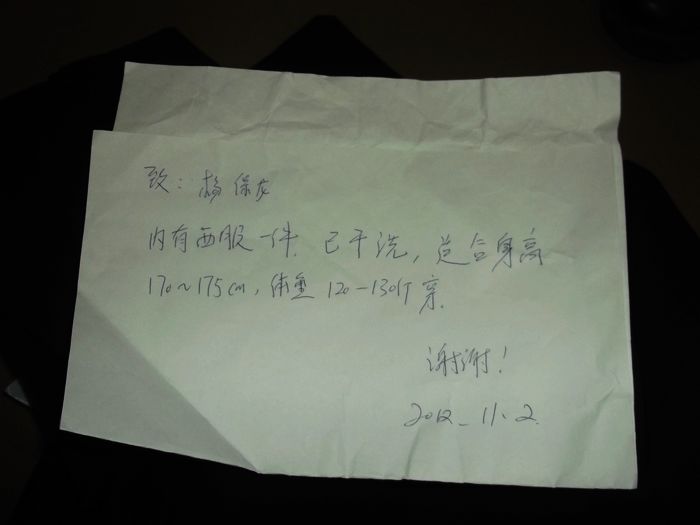 致：杨保友
内有西服一件.已干洗，适合身高
170~175cm，体重120-130斤穿.
谢谢！
2012.11.2.